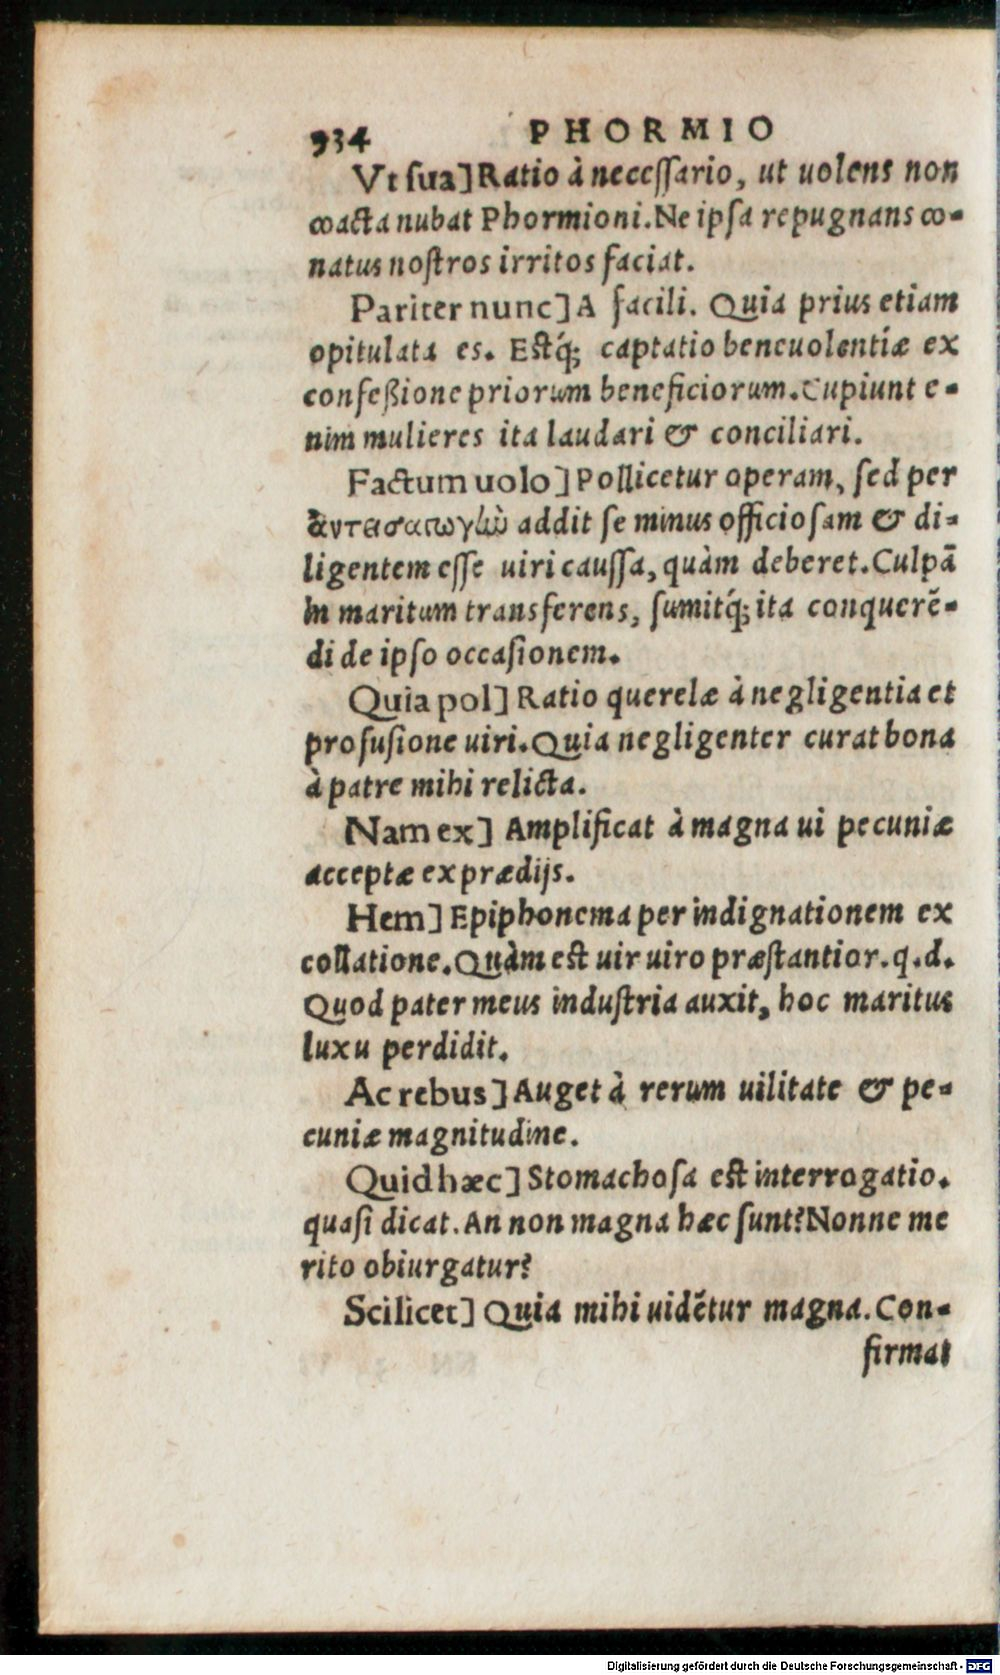 934 PHORMIO
Vt sua] Ratio à necessario, ut uolens non
coacta nubat Phormioni. Ne ipsa repugnans co-
natus nostros irritos faciat.
Pariter nunc] A facili. Quia prius etiam
opitulata es. Estq́; captatio beneuolentiæ ex
confeßione priorum beneficiorum. Cupiunt e-
nim mulieres ita laudari & conciliari.
Factum uolo] Pollicetur operam, sed per
addit se minus officiosam & di-
ligentem esse uiri caussa, quàm deberet. Culpã
in maritum transferens, sumitq́; ita conquerẽ-
di de ipso occasionem.
Quia pol] Ratio querelæ à negligentia et
profusione uiri. Quia negligenter curat bona
à patre mihi relicta.
Nam ex] Amplificat à magna ui pecuniæ
acceptæ ex prædijs.
Hem] Epiphonema per indignationem ex
collatione. Quàm est uir uiro præstantior. q.d.
Quod pater meus industria auxit, hoc maritus
luxu perdidit.
Ac rebus] Auget à rerum uilitate & pe-
cuniæ magnitudine.
Quid hæc] Stomachosa est interrogatio.
quasi dicat. An non magna hæc sunt? Nonne me
rito obiurgatur?
Scilicet] Quia mihi uidẽtur magna. Con-
firmat
Digitalisierung gefördert durch die Deutsche Forschungsgemeinschaft - DFG